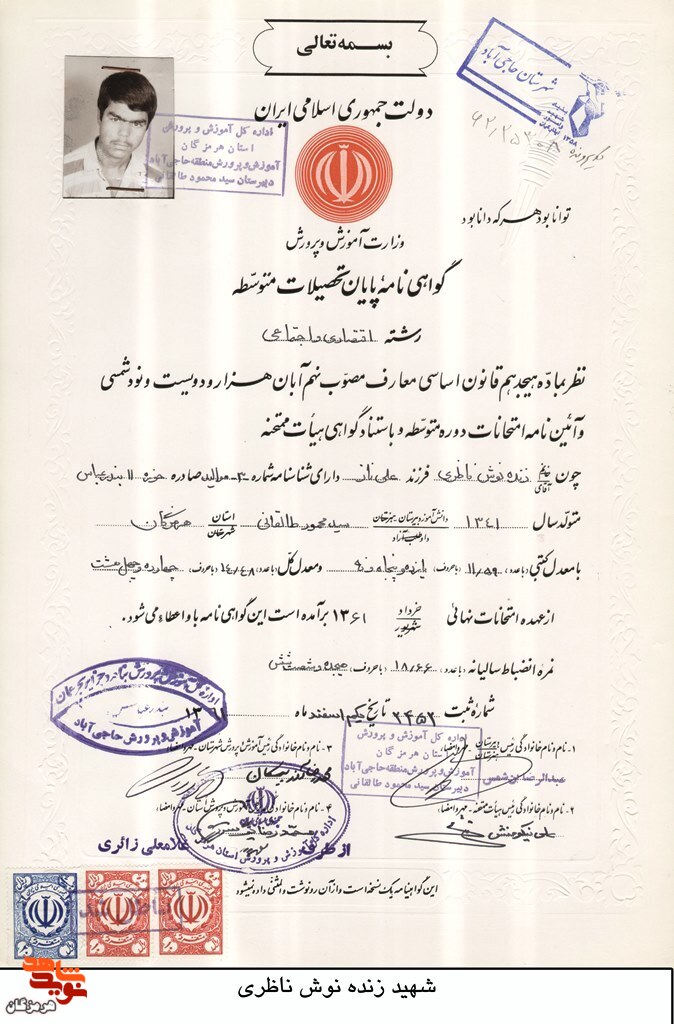 بسمه تعالی
شهرستان حاجی آباد
دولت جمهوری اسلامی ایران
اداره کل آموزش و پرورش
استان هرمزگان
آموزش و پرورش منطقه حاجی آباد
دبیرستان سید محمود طالقانی
توانا بود هر که دانا بود
وزارت آموزش و پرورش
گواهی نامه پایان تحصیلات متوسطه
رشته اقتصادی و اجتماعی
نظر بماده هیجدهم قانون اساسی معارف مصوب نهم آبان هزار و دویست و نود شمسی
و آئین نامه امتحانات دوره متوسطه و باستناد گواهی هیأت ممتحنه
چون خانم آقای زنده نوش ناظری فرزند علی ناز دارای شناسنامه شماره ۳۰ صادره حوزه ۱۱ بندرعباس
متولد سال ۱۳۴۱ دانش آموز دبیرستان هنرستان داوطلب آزاد سید محمود طالقانی استان شهرستان هرمزگان
با معدل کتبی (با عدد) ۱۱/۵۹ (با حروف) یازده و پنجاه و نه و معدل کل (با عدد) ۱۴/۴۸ (با حروف) چهارده و چهل و هشت
از عهده امتحانات نهائی خرداد شهریور ۱۳۶۱ برآمده است این گواهی نامه باو اعطاء می شود.
نمره انضباط سالیانه (با عدد) ۱۸/۶۶ (با حروف) هیجده و شصت و شش
شماره ثبت ۲۴۵۲ تاریخ یکم اسفند ماه ۱۳۶۱
آموزش و پرورش حاجی آباد
۱- نام و نام خانوادگی رئیس دبیرستان هنرستان - مهر و امضاء
۳- نام و نام خانوادگی رئیس آموزش و پرورش شهرستان - مهر و امضاء
اداره کل آموزش و پرورش
استان هرمزگان
آموزش و پرورش منطقه حاجی آباد
دبیرستان سید محمود طالقانی
۲- نام و نام خانوادگی رئیس هیأت ممتحنه - مهر و امضاء
۴- نام و نام خانوادگی آموزش و پرورش استان - مهر و امضاء
از طرف غلامعلی زائری
این گواهینامه یک نسخه است و از آن رونوشت و المثنی داده نمیشود
نوید شاهد
هرمزگان
شهید زنده نوش ناظری